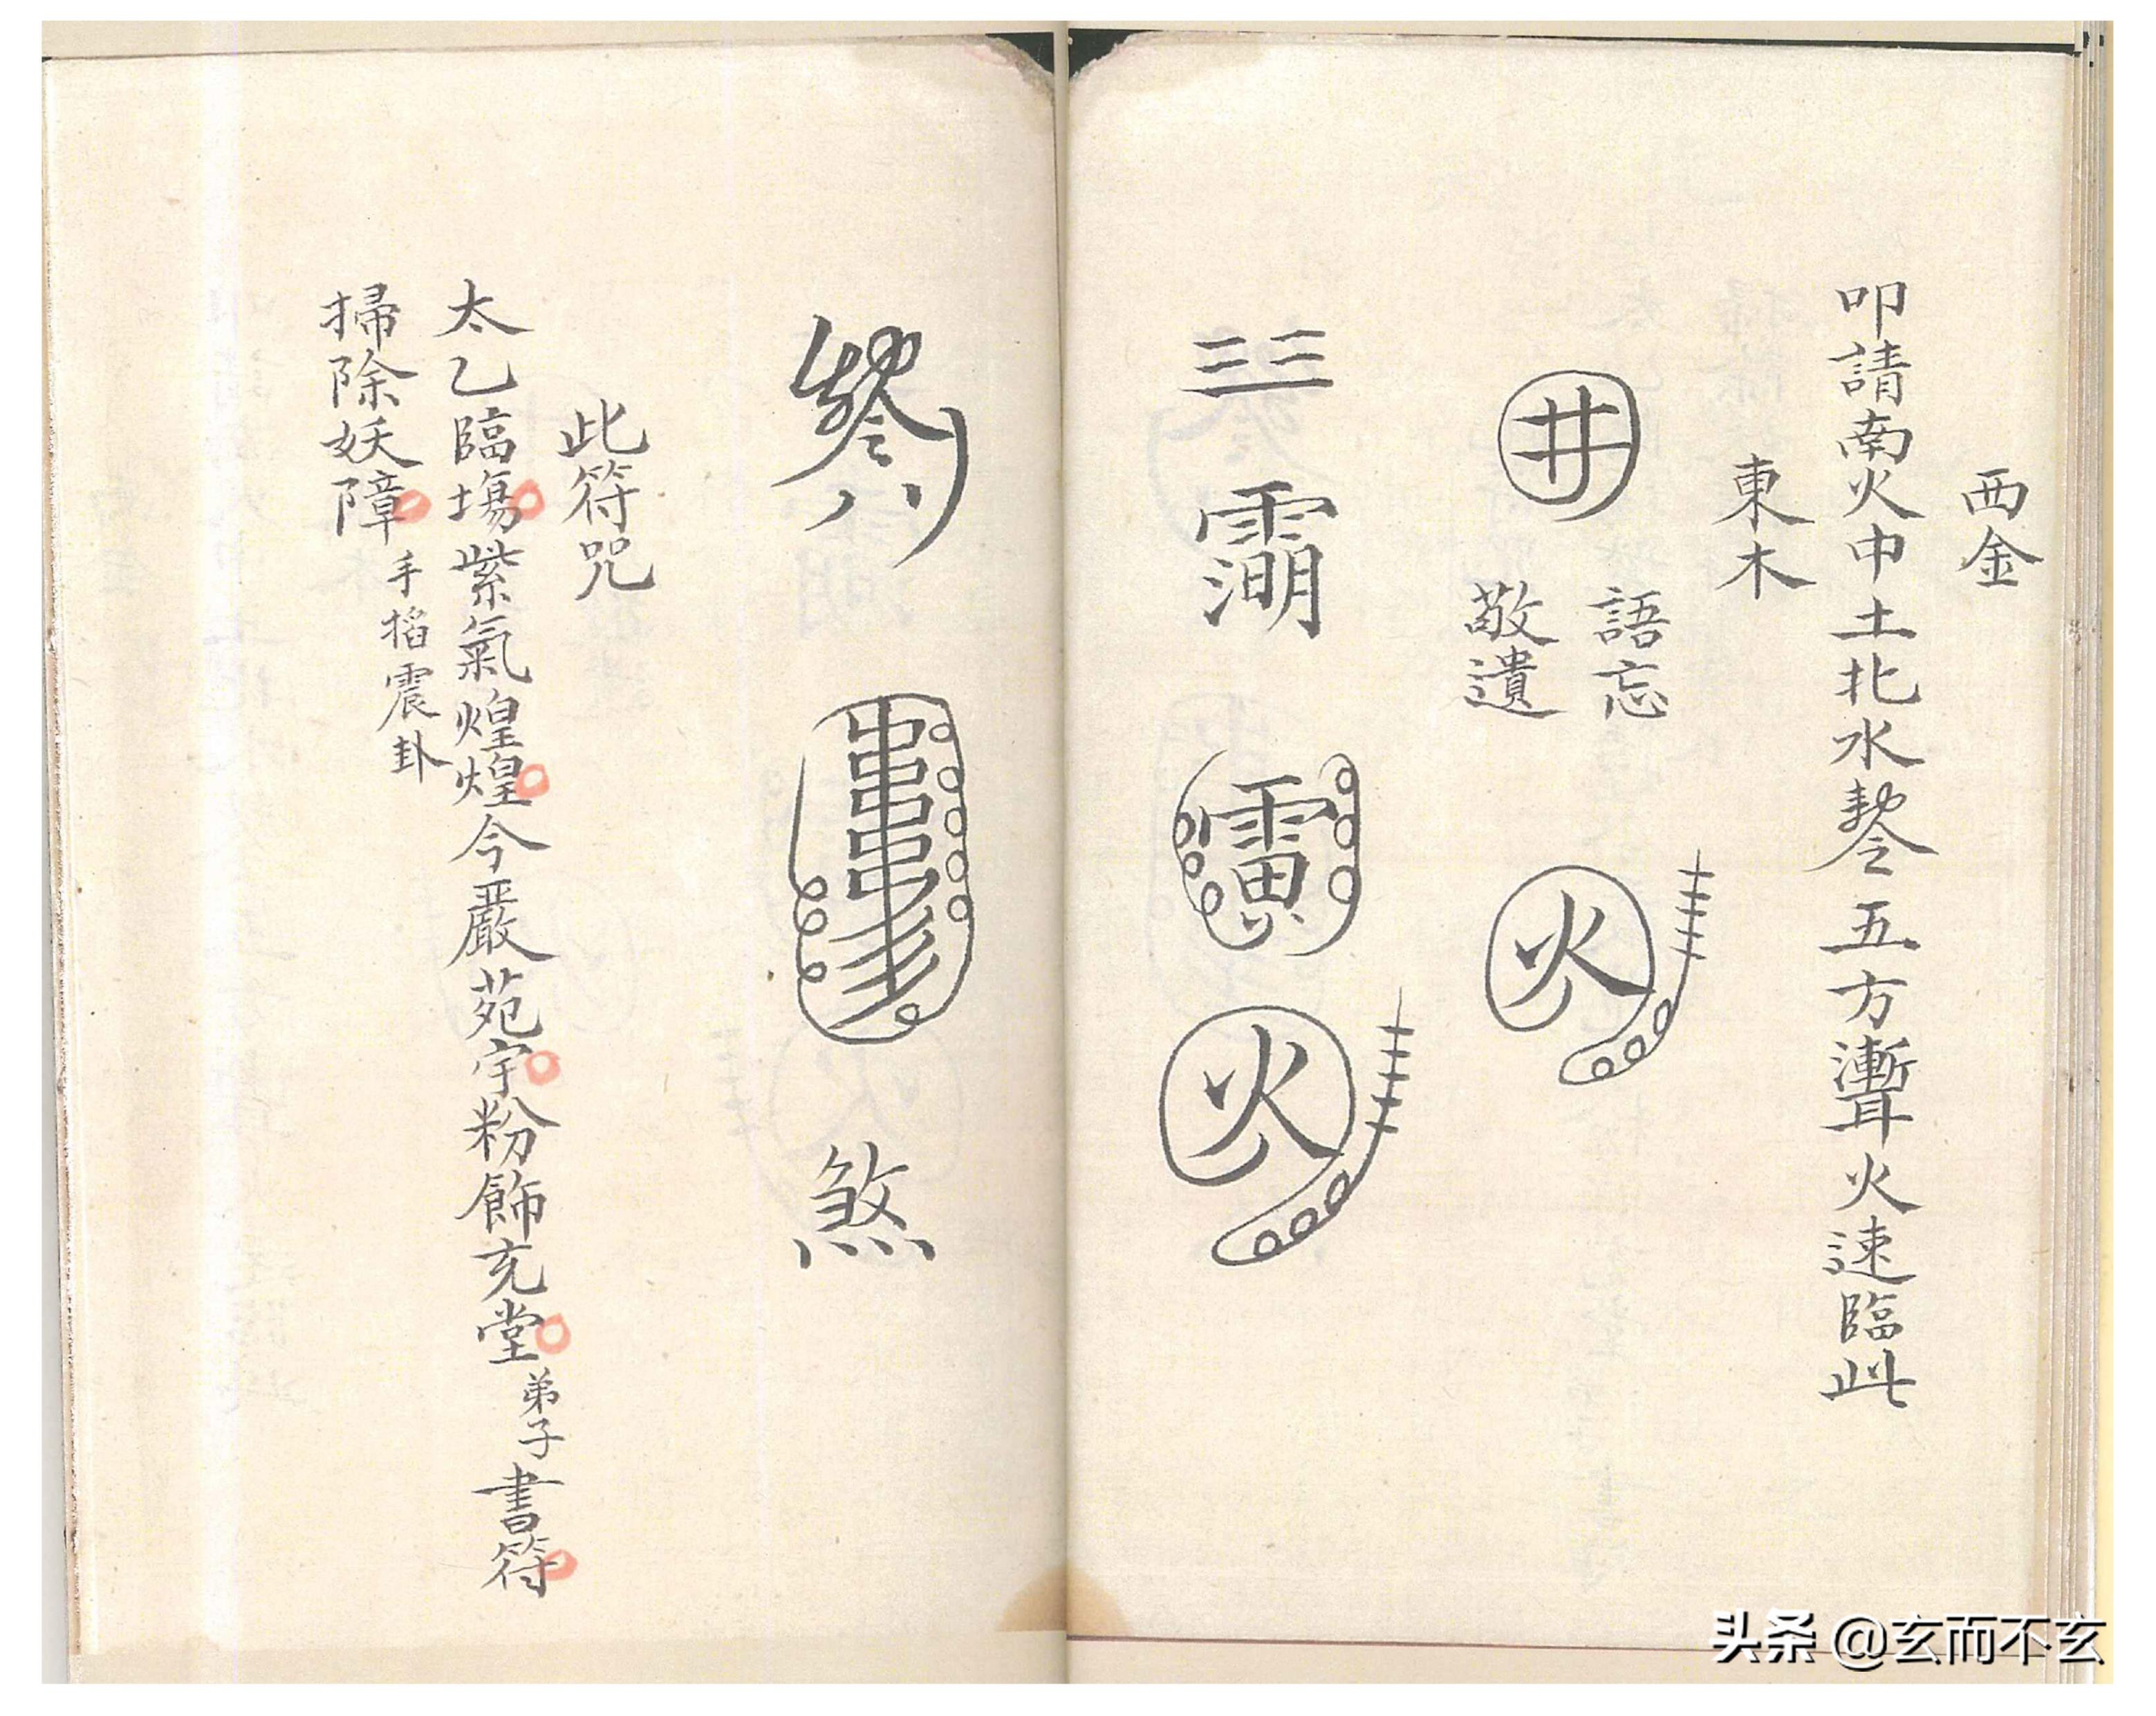 西金
叩請南火中土北水 五方 火速臨此
東木
井
語忘
敬遺
火
三三
火
煞
此符咒
太乙臨場紫氣煌煌今嚴苑宇粉飾充堂弟子書符
掃除妖障手掐震卦
头条 @玄而不玄